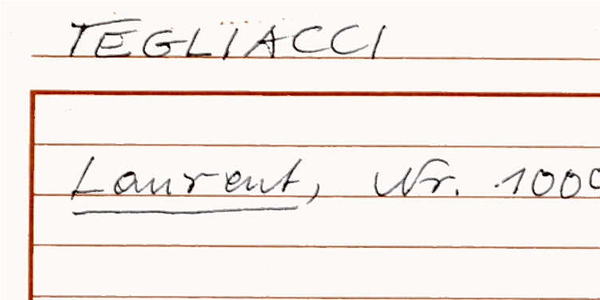 TEGLIACCI
Laurent, Nr. 1000